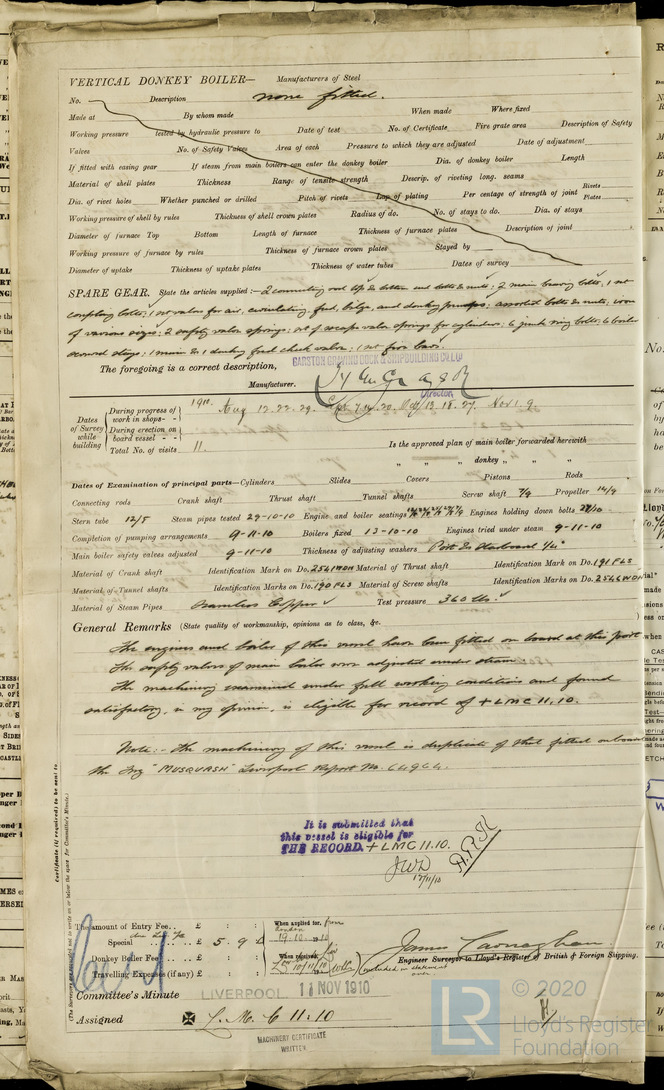 VERTICAL DONKEY BOILER— Manufacturers of Steel
No. Description none fitted.
Made at By whom made When made Where fixed
Working pressure tested by hydraulic pressure to Date of test No. of Certificate Fire grate area Description of Safety
Valves No. of Safety Valves Area of each Pressure to which they are adjusted Date of adjustment
If fitted with easing gear If steam from main boilers can enter the donkey boiler Dia. of donkey boiler Length
Material of shell plates Thickness Range of tensile strength Descrip. of riveting long. seams
Dia. of rivet holes Whether punched or drilled Pitch of rivets Lap of plating Per centage of strength of joint Rivets Plates
Working pressure of shell by rules Thickness of shell crown plates Radius of do. No. of stays to do. Dia. of stays
Diameter of furnace Top Bottom Length of furnace Thickness of furnace plates Description of joint
Working pressure of furnace by rules Thickness of furnace crown plates Stayed by
Diameter of uptake Thickness of uptake plates Thickness of water tubes Dates of survey
SPARE GEAR. State the articles supplied:— 2 connecting rod top & bottom end bolts & nuts; 2 main bearing bolts, 1 set
coupling bolts; 1 set valves for air, circulating, feed, bilge, and donkey pumps; assorted bolts & nuts, iron
of various sizes; 2 safety valve springs; set of escape valve springs for cylinders; 6 junk ring bolts; 6 boiler
1 main & 1 donkey feed check valve; 1 set fire bars.
The foregoing is a correct description,
GARSTON GRAVING DOCK & SHIPBUILDING CO LTD
Manufacturer. Director
Dates of Survey while building
During progress of work in shops - - 1910. Aug 12. 22. 29. Sept. 7. 14. 20. Oct 13. 18. 27. Nov 1. 9.
During erection on board vessel - - -
Total No. of visits 11.
Is the approved plan of main boiler forwarded herewith
" " " donkey " " "
Dates of Examination of principal parts—Cylinders Slides Covers Pistons Rods
Connecting rods Crank shaft Thrust shaft Tunnel shafts Screw shaft 7/9 Propeller 14/9
Stern tube 12/8 Steam pipes tested 29-10-10 Engine and boiler seatings Engines holding down bolts 27/10
Completion of pumping arrangements 9-11-10 Boilers fixed 13-10-10 Engines tried under steam 9-11-10
Main boiler safety valves adjusted 9-11-10 Thickness of adjusting washers Port & Starboard 1/4"
Material of Crank shaft Identification Mark on Do. 2541WOH Material of Thrust shaft Identification Mark on Do. 191 FLS
Material of Tunnel shafts Identification Marks on Do. 190 FLS Material of Screw shafts Identification Marks on Do. 2546WOH
Material of Steam Pipes Seamless Copper Test pressure 360 lbs.
General Remarks (State quality of workmanship, opinions as to class, &c.
The engines and boiler of this vessel have been fitted on board at this port
The safety valves of main boiler were adjusted under steam.
The machinery examined under full working conditions and found
satisfactory, in my opinion, is eligible for record of + LMC 11.10.
Note:- The machinery of this vessel is duplicate of that fitted onboard
the Tug "MUSQUASH" Liverpool Report No. 64964.
It is submitted that
this vessel is eligible for
THE RECORD. + LMC 11.10.
JWD
17/11/10
The amount of Entry Fee.. £ : :
Special .. .. £ 5 . 9 .
Donkey Boiler Fee.. .. £ : :
Travelling Expenses (if any) £ : :
When applied for,
19.10.10
When received,
James Carnaghan
Engineer Surveyor to Lloyd's Register of British & Foreign Shipping.
Committee's Minute
LIVERPOOL 11 NOV 1910
Assigned L.M.C 11.10
MACHINERY CERTIFICATE
WRITTEN
LR © 2020
Lloyd's Register
Foundation